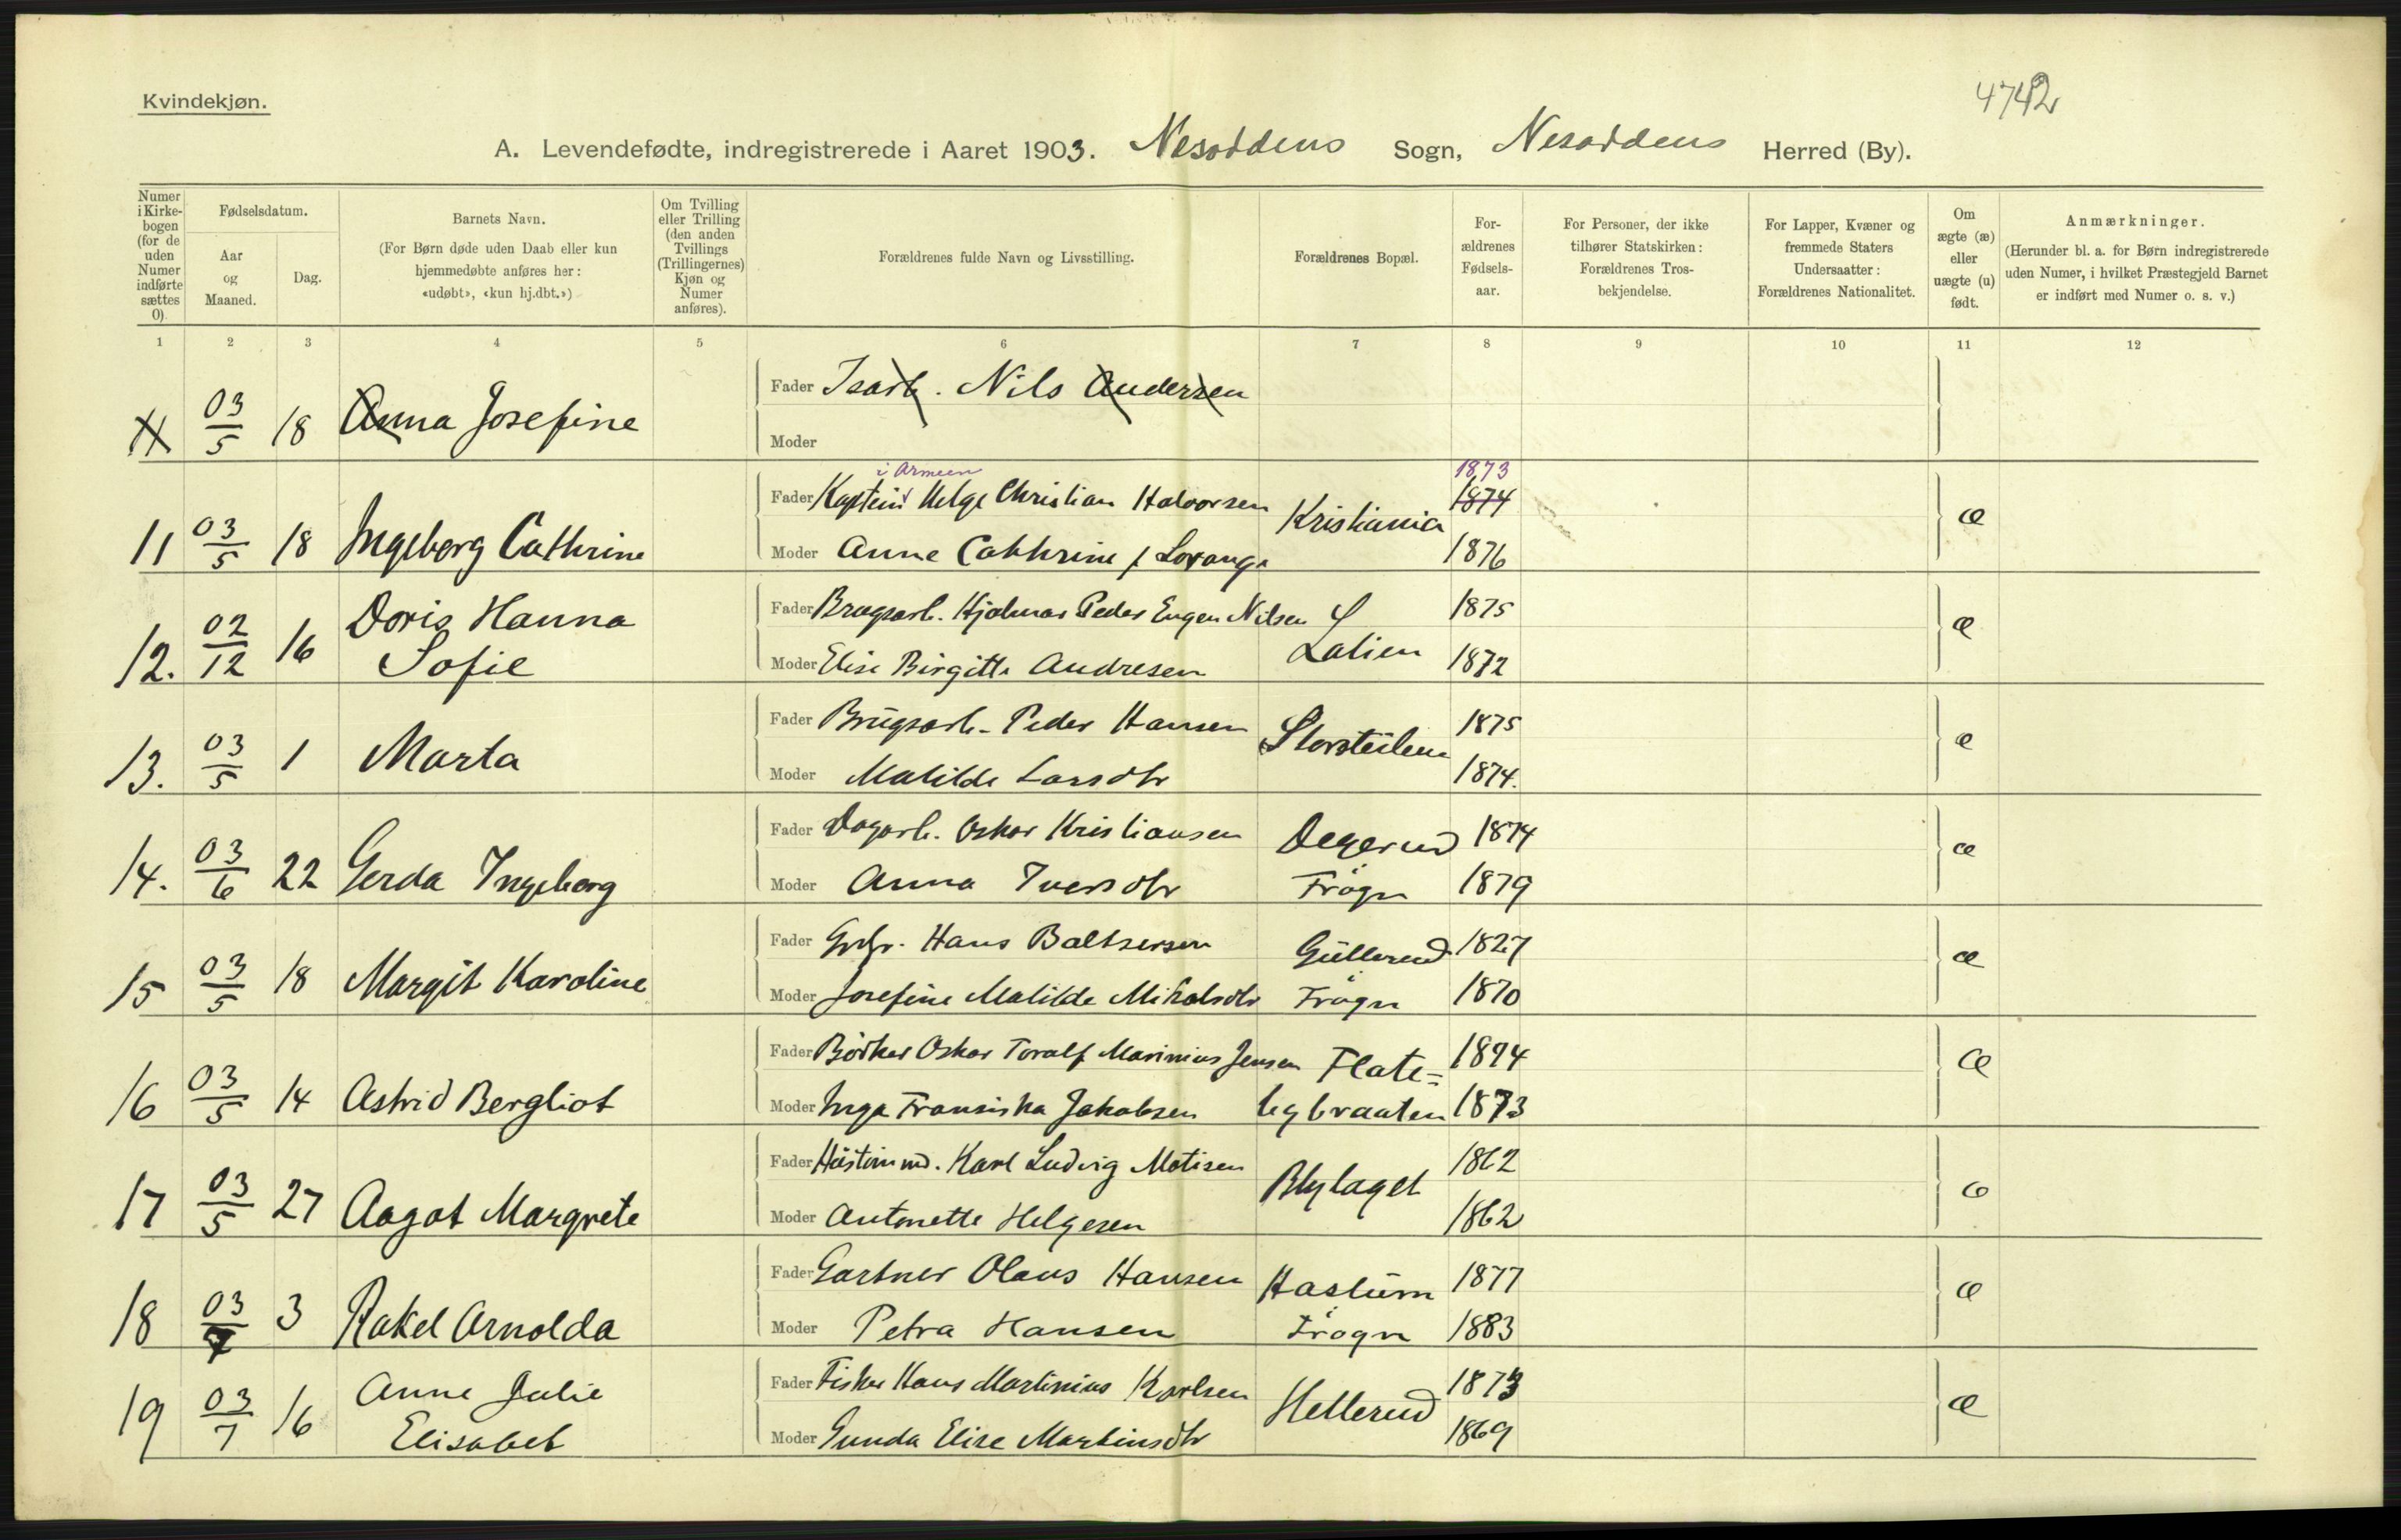 4742
Kvindekjøn.
A. Levendefødte, indregistrerede i Aaret 1903. Nesoddens Sogn, Nesoddens Herred (By).
Numer i Kirkebogen (for de uden Numer indførte sættes 0)
Fødselsdatum.
Aar og Maaned.
Dag.
Barnets Navn.
(For Børn døde uden Daab eller kun hjemmedøbte anføres her: «udøbt», «kun hj.dbt.»)
Om Tvilling eller Trilling (den anden Tvillings (Trillingernes) Kjøn og Numer anføres).
Forældrenes fulde Navn og Livsstilling.
Forældrenes Bopæl.
Forældrenes Fødselsaar.
For Personer, der ikke tilhører Statskirken: Forældrenes Trosbekjendelse.
For Lapper, Kvæner og fremmede Staters Undersaatter: Forældrenes Nationalitet.
Om ægte (æ) eller uægte (u) født.
Anmærkninger.
(Herunder bl. a. for Børn indregistrerede uden Numer, i hvilket Præstegjeld Barnet er indført med Numer o. s. v.)
1 2 3 4 5 6 7 8 9 10 11 12
11 03/5 18 Anna Josefine Fader Isarb. Nils Andersen
Moder
i Armeen 1873
11 03/5 18 Ingeborg Cathrine Fader Kaptein Helge Christian Halvorsen Kristiania 1874 æ
Moder Anne Cathrine f Lorange 1876
12. 02/12 16 Doris Hanna Sofie Fader Brugsarb. Hjalmar Peder Eugen Nilsen 1875 æ
Moder Elise Birgitte Andresen Lalien 1872
13. 03/5 1 Marta Fader Brugsarb. Peder Hansen Storsteilene 1875 æ
Moder Matilde Larsdtr 1874.
14. 03/6 22 Gerda Ingeborg Fader Dagarb. Oskar Kristiansen Degerud 1874 æ
Moder Anna Iversdtr Frogn 1879
15 03/5 18 Margit Karoline Fader Grbr. Hans Baltsersen Gullerud 1827 æ
Moder Josefine Matilde Mikalsdtr Frogn 1870
16 03/5 14 Astrid Bergliot Fader Bødker Oskar Toralf Marinius Jensen Flate= 1894 æ
Moder Inga Fransiska Jakobsen bybraaten 1873
17 03/5 27 Aagot Margrete Fader Karl Ludvig Matisen Blylaget 1862 æ
Moder Antonette Helgesen 1862
18 03/7 3 Rakel Arnolda Fader Gartner Olaus Hansen Haslum 1877 æ
Moder Petra Hansen Frogn 1883
19 03/7 16 Anne Julie Elisabet Fader Fisker Hans Martinius Karlsen Hellerud 1873 æ
Moder Gunda Elise Martinsdtr 1869